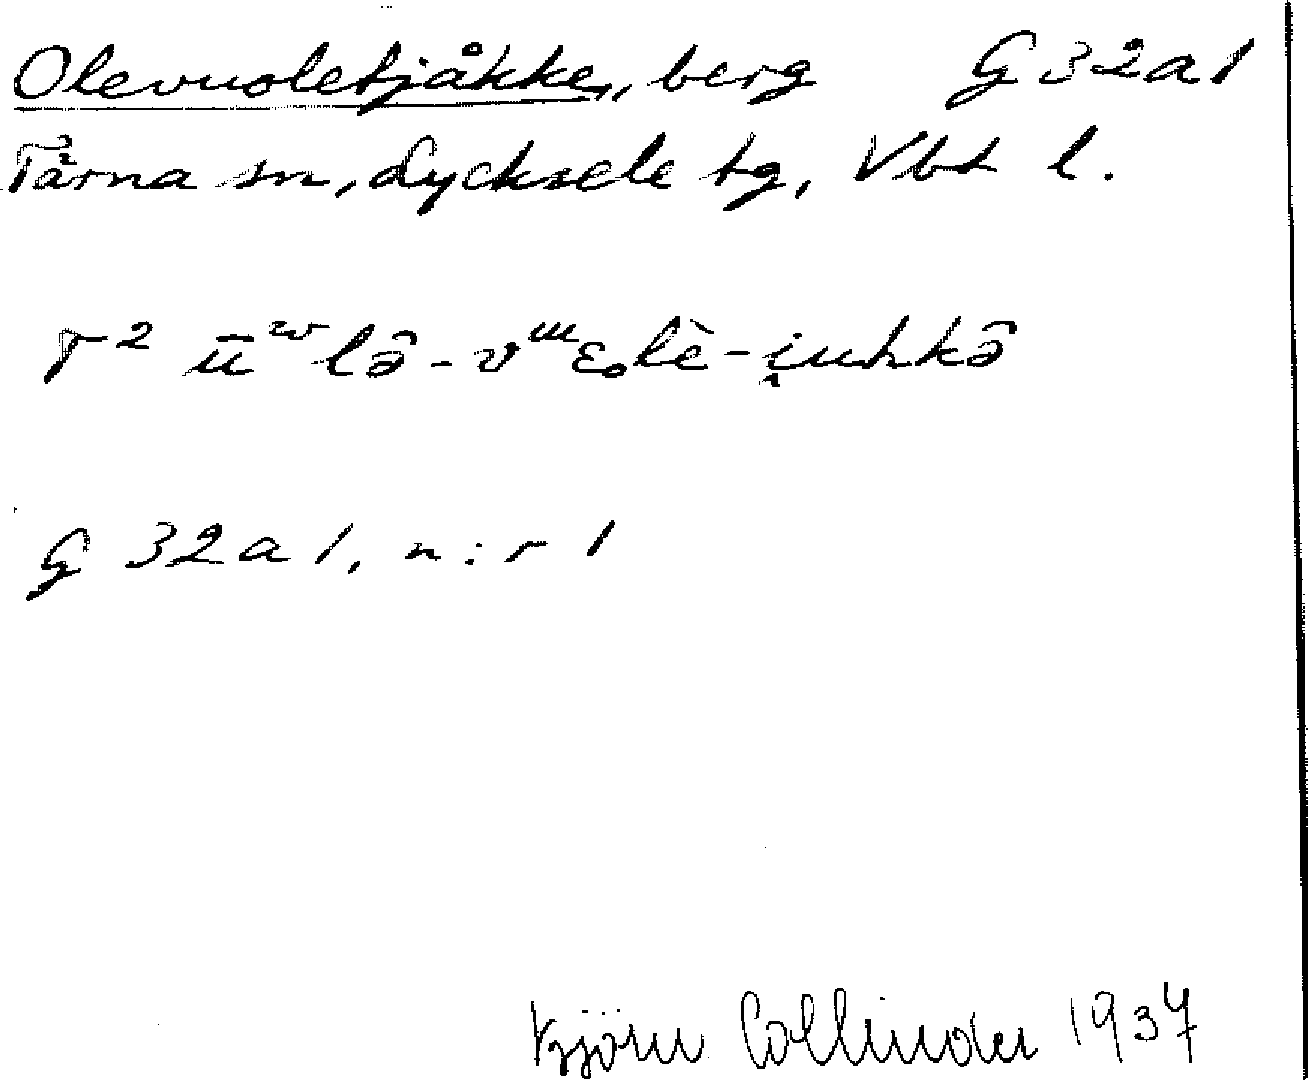 Olevuoletjåkke, berg G 32 a 1
Tärna sn, Lycksele tg, Vbt l.
T² ūʷlə̂ - vᵚɛₒlè - i̯uhkə̂
G 32 a 1, n:r 1
Björn Collinder 1937